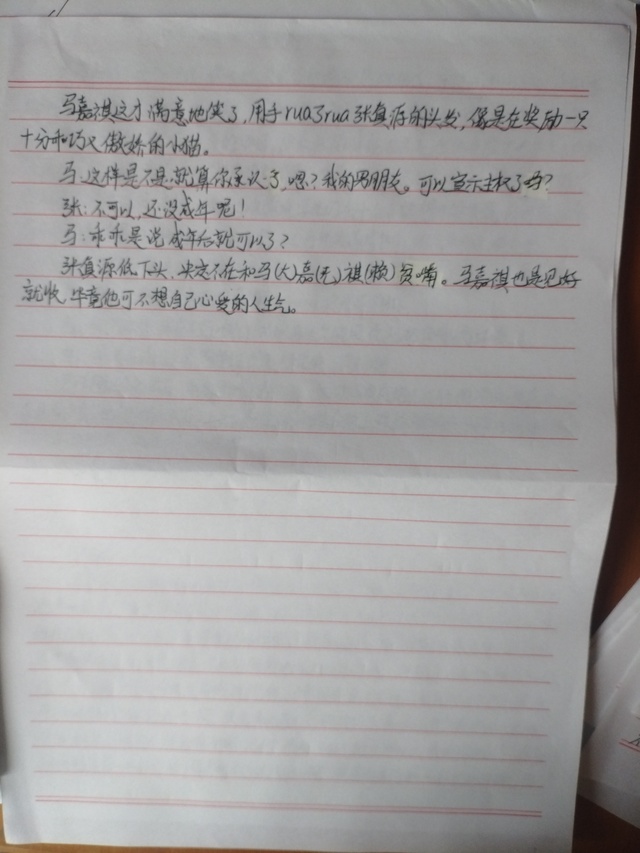 马嘉祺这才满意地笑了,用手rua了rua张真源的头发,像是在奖励一只
十分乖巧又傲娇的小猫。
马:这样是不是就算你承认了,嗯?我的男朋友。可以宣示主权了吗?
张:不可以,还没成年呢!
马:乖乖是说成年后就可以了?
张真源低下头,决定不在和马(大)嘉(无)祺(赖)贫嘴。马嘉祺也是见好
就收,毕竟他可不想自己心爱的人生气。